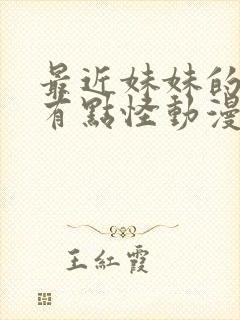 最近妹妹的
有點怪動漫
王紅霞